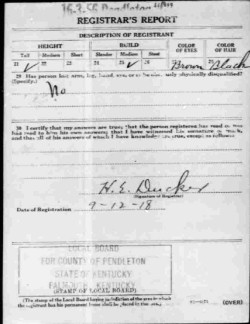 REGISTRAR'S REPORT
DESCRIPTION OF REGISTRANT
HEIGHT BUILD COLOR OF EYES COLOR OF HAIR
Tall Medium Short Slender Medium Stout
21 22 23 24 25 26 Brown Black
29 Has person lost arm, leg, hand, eye, or is he physically disqualified?
(Specify.)
No
30 I certify that my answers are true; that the person registered has read or has
had read to him his own answers; that I have witnessed his signature or mark,
and that all of his answers of which I have knowledge are true, except as follows:
H. E. Ducker
(Signature of Registrar)
Date of Registration 9-12-18
LOCAL BOARD
FOR COUNTY OF PENDLETON
STATE OF KENTUCKY
FALMOUTH, KENTUCKY
(STAMP OF LOCAL BOARD)
(The stamp of the Local Board having jurisdiction of the area in which
the registrant has his permanent home shall be placed in this box.)
(OVER)